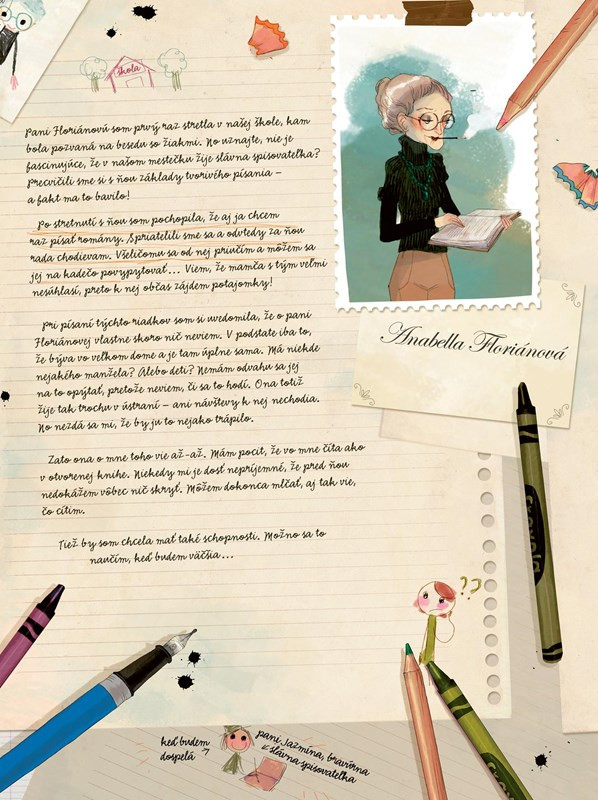 škola
Pani Floriánovú som prvý raz stretla v našej škole, kam
bola pozvaná na besedu so žiakmi. No uznajte, nie je
fascinujúce, že v našom mestečku žije slávna spisovateľka?
Precvičili sme si s ňou základy tvorivého písania –
a fakt ma to bavilo!
Po stretnutí s ňou som pochopila, že aj ja chcem
raz písať romány. Spriatelili sme sa a odvtedy za ňou
rada chodievam. Všeličomu sa od nej priučím a môžem sa
jej na kadečo povypytovať... Viem, že mamča s tým veľmi
nesúhlasí, preto k nej občas zájdem potajomky!
Pri písaní týchto riadkov som si uvedomila, že o pani
Floriánovej vlastne skoro nič neviem. V podstate iba to,
že býva vo veľkom dome a je tam úplne sama. Má niekde
nejakého manžela? Alebo deti? Nemám odvahu sa jej
na to opýtať, pretože neviem, či sa to hodí. Ona totiž
žije tak trochu v ústraní – ani návštevy k nej nechodia.
No nezdá sa mi, že by ju to nejako trápilo.
Zato ona o mne toho vie až-až. Mám pocit, že vo mne číta ako
v otvorenej knihe. Niekedy mi je dosť nepríjemné, že pred ňou
nedokážem vôbec nič skryť. Môžem dokonca mlčať, aj tak vie,
čo cítim.
Tiež by som chcela mať také schopnosti. Možno sa to
naučím, keď budem väčšia...
Anabella Floriánová
Crayola
??
keď budem
dospelá
pani Jazmína, bravúrna
slávna spisovateľka